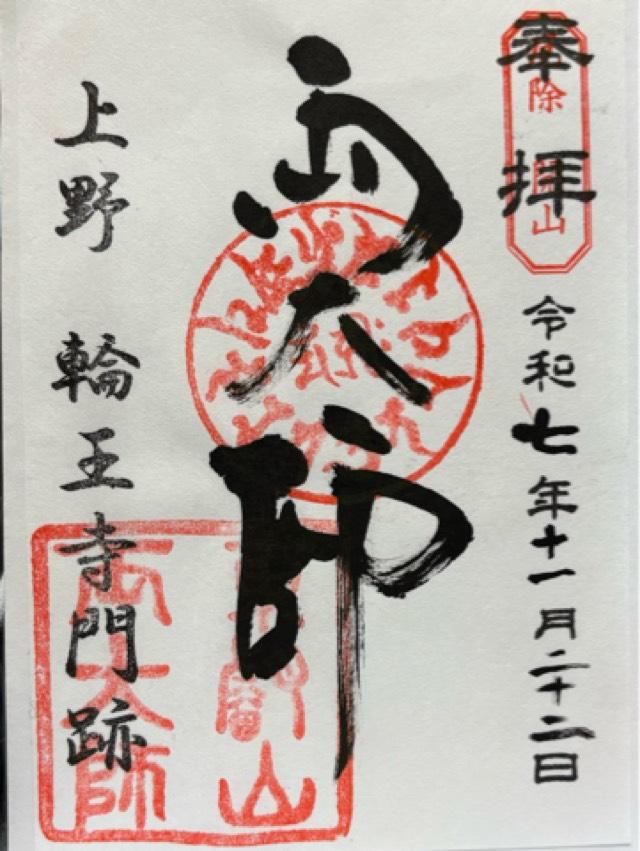 奉拝
令和七年十一月二十二日
両大師
上野 輪王寺門跡
東叡山
両大師